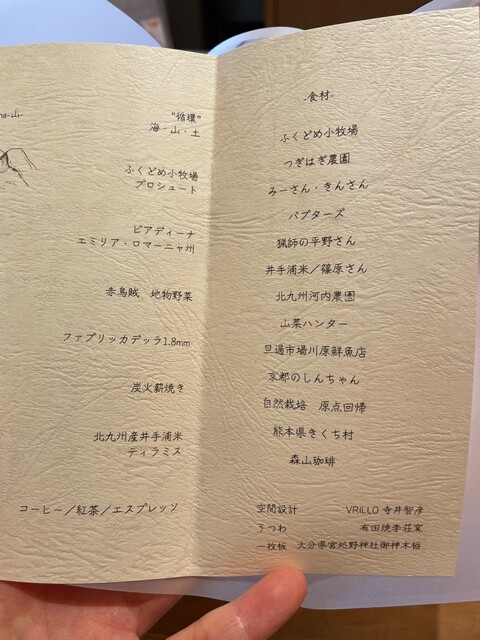 na-山-
"循環"
海・山・土
ふくどめ小牧場
プロシュート
ピアディーナ
エミリア・ロマーニャ州
赤烏賊 地物野菜
ファブリッカデッラ1.8mm
炭火薪焼き
北九州産井手浦米
ティラミス
コーヒー／紅茶／エスプレッソ
-食材-
ふくどめ小牧場
つぎはぎ農園
みーさん・きんさん
パプターズ
猟師の平野さん
井手浦米／篠原さん
北九州河内農園
山菜ハンター
旦過市場川原鮮魚店
京都のしんちゃん
自然栽培 原点回帰
熊本県きくち村
森山珈琲
空間設計 VRILLO 寺井智彦
うつわ 有田焼李荘窯
一枚板 大分県宮処野神社御神木栃